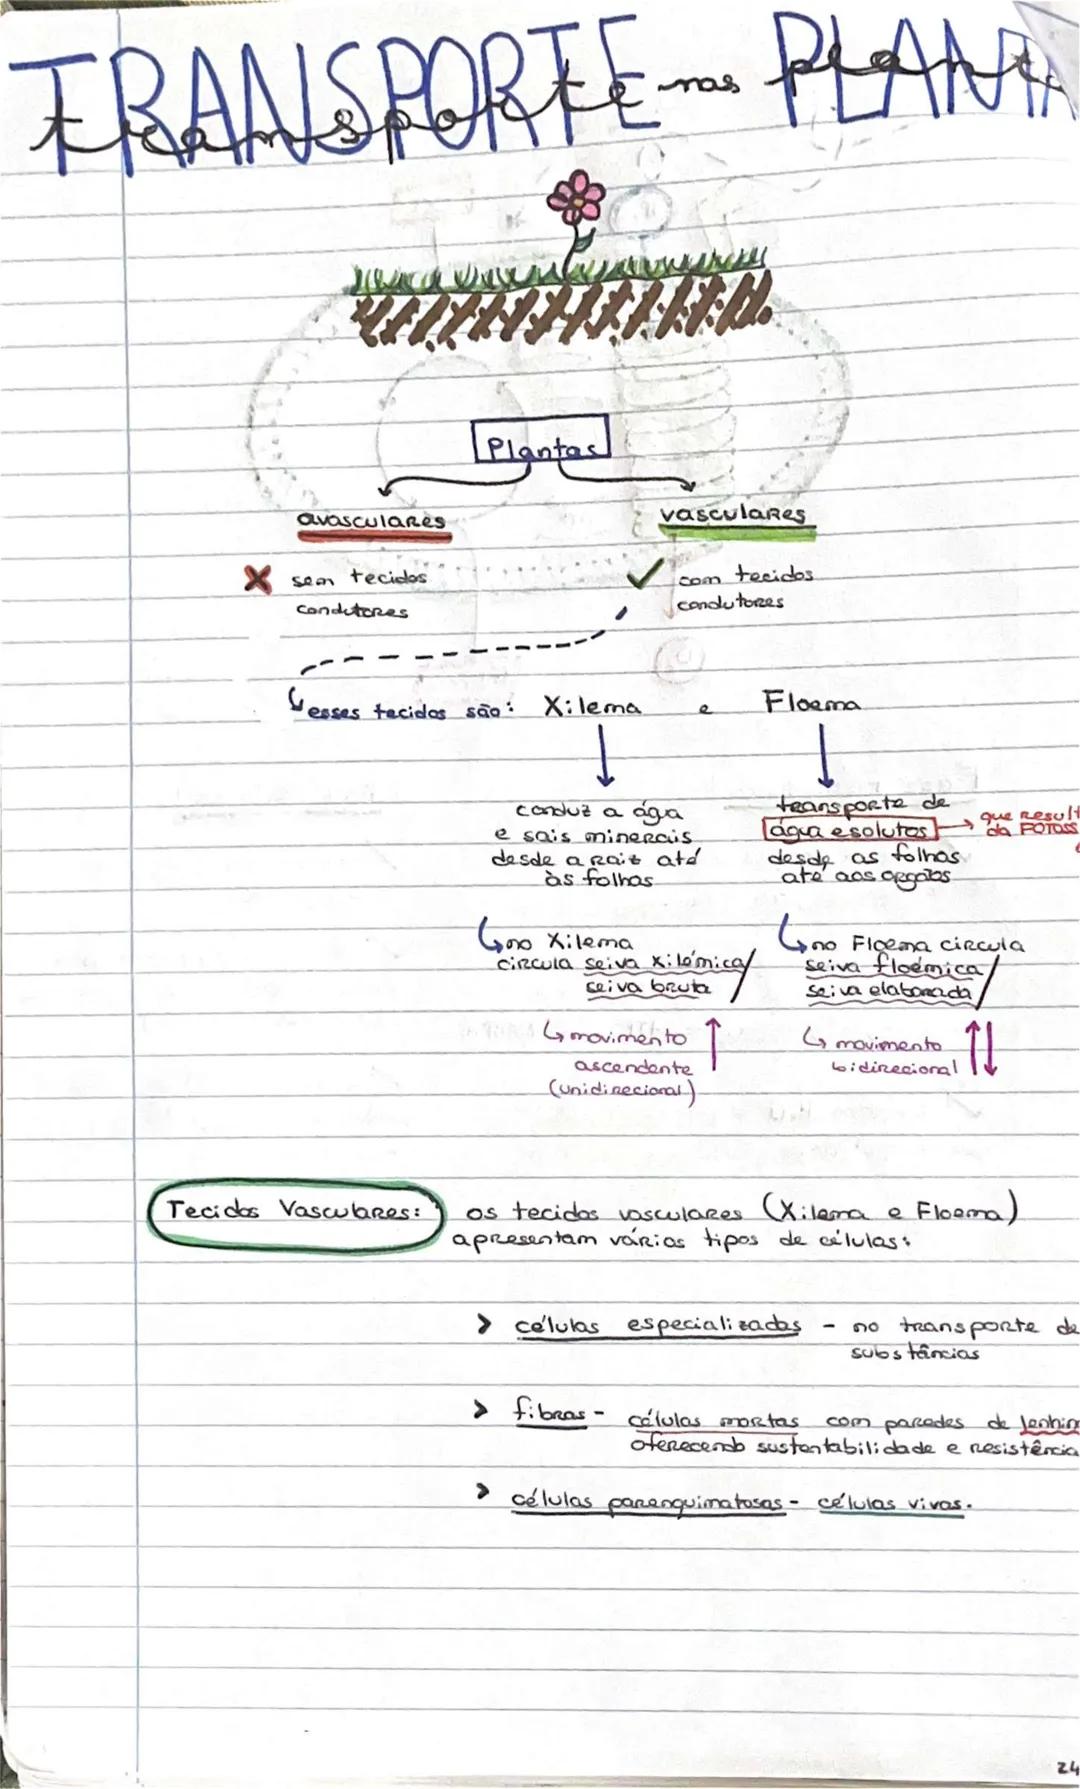 TRANSPORTE nas PLANT
transporte plant
Plantas
avasculares
vasculares
sem tecidos
condutores
com tecidos
condutores
esses tecidos são: Xilema e Floema
conduz a ága
e sais minerais
desde a raiz até
às folhas
transporte de
água e solutos
desde as folhas
até aos orgãos
que result
da FOTOSS
no Xilema
circula seiva xilémica/
seiva bruta
no Floema circula
seiva floémica/
seiva elaborada
movimento
ascendente
(unidirecional)
movimento
bidirecional
Tecidos Vasculares: os tecidos vasculares (Xilema e Floema)
apresentam vários tipos de células:
> células especializadas - no transporte de
substâncias
> fibras - células mortas com paredes de lenhin
oferecendo sustentabilidade e resistência
> células parenquimatosas - células vivas.
24